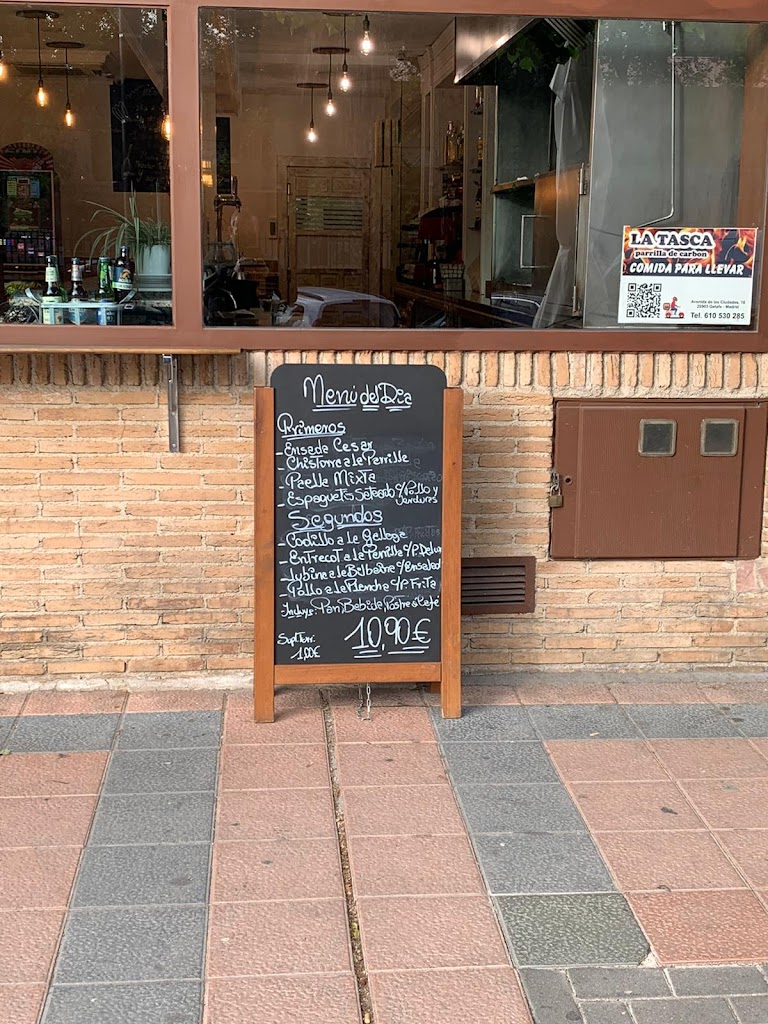 LA TASCA
parrilla de carbon
COMIDA PARA LLEVAR
Avenida de las Ciudades, 10
28903 Getafe - Madrid
Tel. 610 530 285
Menú del Día
Primeros
- Ensada Cesar
- Chistorra a la Parrilla
- Paella Mixta
- Espaguetis Salteado c/Pollo y
Verduras
Segundos
- Codillo a la Gallega
- Entrecot a la Parrilla c/P. Delux
- Lubina a la Bilbaina c/Ensalad
- Pollo a la Plancha c/P. Frita
- Incluye: Pan, Bebida, Postre o Café
Supl Terr:
1,00€
10,90€